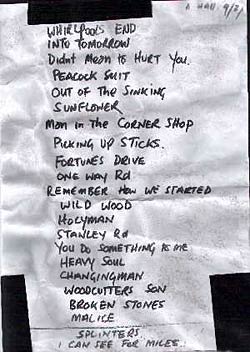 WHIRLPOOLS END
INTO TOMORROW
Didnt Mean to HURT You.
PEACOCK SUIT
OUT OF THE SINKING
SUNFLOWER
Man in The CORNER SHOP
PICKING UP STICKS.
FORTUNES DRIVE
ONE WAY Rd
REMEMBER HOW WE STARTED
WILD WOOD
HOLYMAN
STANLEY Rd
YOU DO SOMETHING to ME
HEAVY SOUL
CHANGINGMAN
WOODCUTTERS SON
BROKEN STONES
MALICE
SPLINTERS
I CAN SEE FOR MILES.